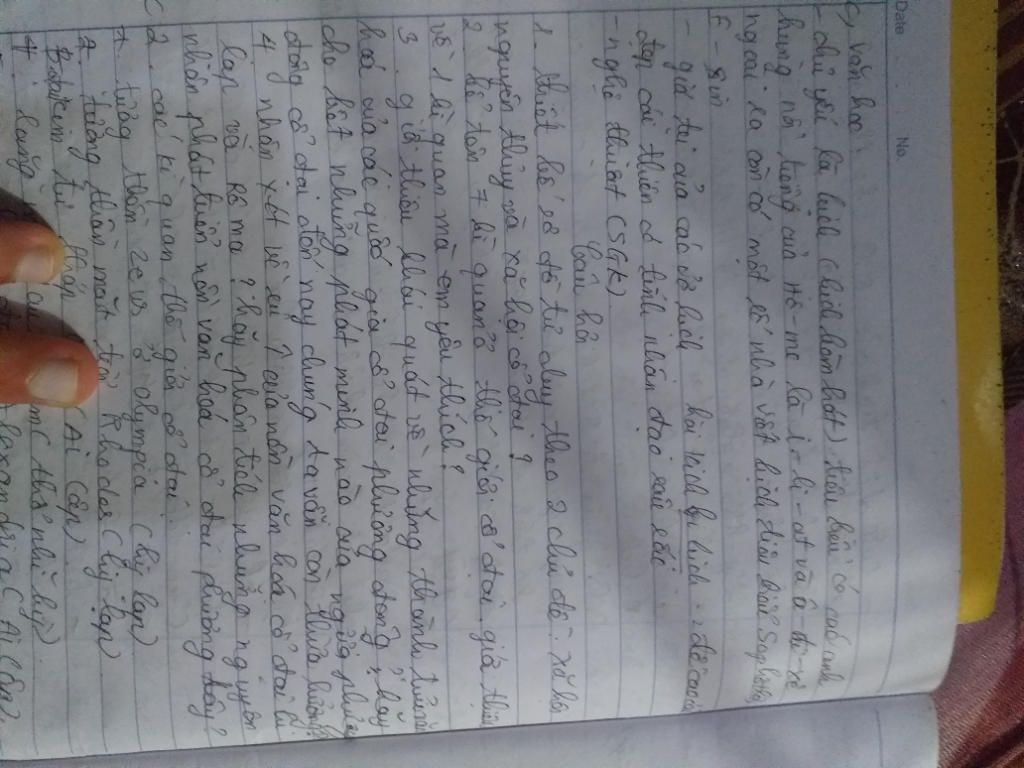 Date
No.
c, văn học
- chủ yếu là kịch (kịch kèm hát) tiêu biểu có
hùng nổi tiếng của Hô-me là i-li-at và ô-đi-xê
ngoài ra còn có một số nhà viết kịch tiêu biểu
- giá trị của các vở kịch bi kịch đề cao cái
đẹp cái thiện có tính nhân đạo sâu sắc
- nghệ thuật (SGK)
Câu hỏi
1. thiết kế sơ đồ tư duy theo 2 chủ đề. xã hội
nguyên thủy và xã hội cổ đại?
2 kể tên 7 kì quan thế giới cổ đại. giới thiệu
về 1 kì quan mà em yêu thích?
3 giới thiệu khái quát về những thành tựu văn
hoá của các quốc gia cổ đại phương đông? hãy
cho biết những phát minh nào của người phương
đông cổ đại đến nay chúng ta vẫn còn thừa hưởng
4 nhận xét về của nền văn hoá cổ đại
lạp và Rô ma? hãy phân tích những nguyên
nhân phát triển nền văn hoá cổ đại phương tây?
2 các kì quan thế giới cổ đại.
+ tượng thần zeus ở olympia (hy lạp)
+ tượng thần mặt trời Rhodes (hy lạp)
+ tháp (Ai Cập)
(thổ nhĩ kỳ)
+ lexandria (Ai Cập)